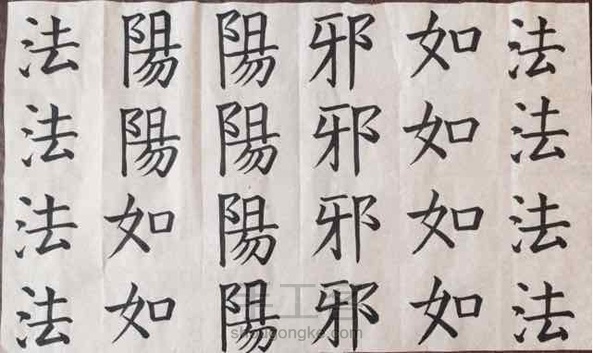 法法法法
如如如如
邪邪邪邪
陽陽陽陽
陽陽如如
法法法法
手工客
shougongke.com